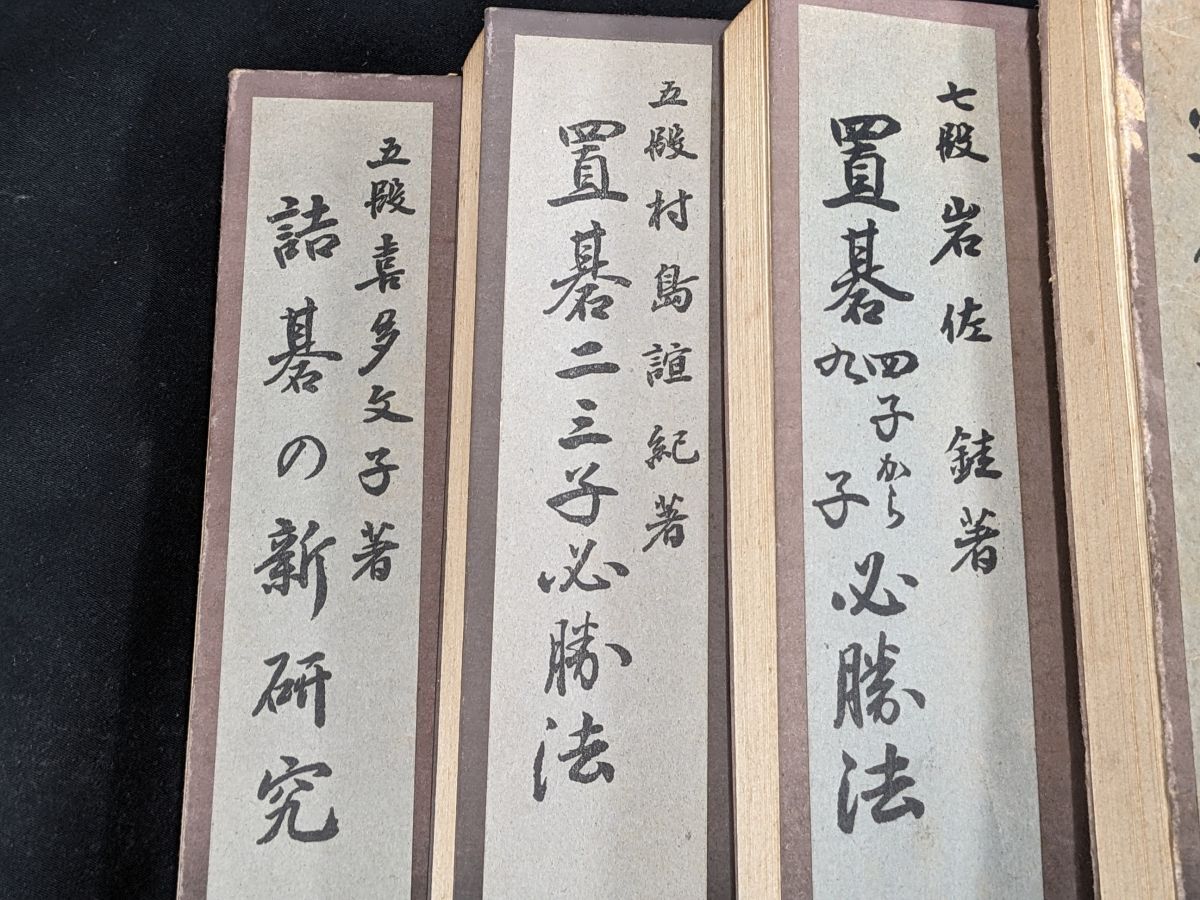 七段 岩佐銈著
置碁 四子から九子 必勝法
五段 村島誼紀著
置碁二三子必勝法
五段 喜多文子著
詰碁の新研究